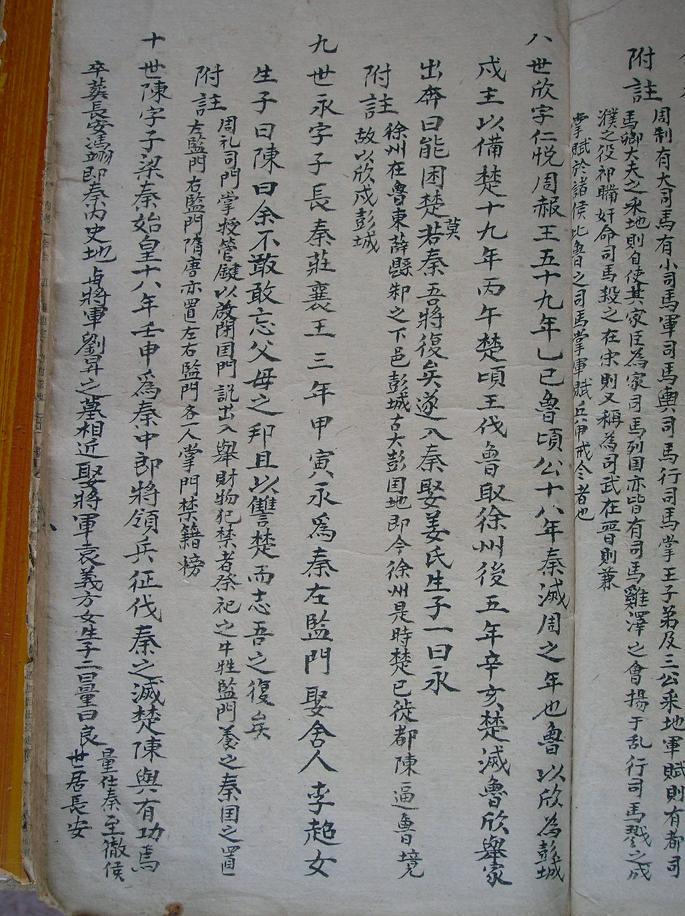 附註
周制有大司馬有小司馬軍司馬輿司馬行司馬掌王子弟及三公采地軍賦則有都司
馬卿大夫之采地則自使其家臣為家司馬列国亦皆有司馬雞澤之會揚于乱行司馬戮之成
濮之役祁瞞奸命司馬殺之在宋則又稱為司武在晉則兼
掌賦於諸侯此魯之司馬掌軍賦兵甲戒令者也
八世欣字仁悦周赧王五十九年乙巳魯頃公十八年秦滅周之年也魯以欣為彭城
戍主以備楚十九年丙午楚頃王伐魯取徐州後五年辛亥楚滅魯欣舉家
出奔曰能困楚莫若秦吾將復矣遂入秦娶姜氏生子一曰永
附註
徐州在魯東薛縣邾之下邑彭城古大彭国地即今徐州是時楚已徙都陳逼魯境
故以欣戍彭城
九世永字子長秦莊襄王三年甲寅永為秦左監門娶舍人李超女
生子曰陳曰余不敢敢忘父母之邦且以讐楚而志吾之復矣
附註
周礼司門掌授管鍵以啟閉国門説出入舉財物犯禁者祭祀之牛牲監門養之秦国之置
左監門右監門隋唐亦置左右監門各一人掌門禁籍榜
十世陳字子梁秦始皇十八年壬申為秦中郎將領兵征伐秦之滅楚陳與有功焉
卒葬長安馮翊即秦内史地与將軍劉昇之墓相近娶將軍袁義方女生子二曰量曰良
量仕秦至徹侯
世居長安